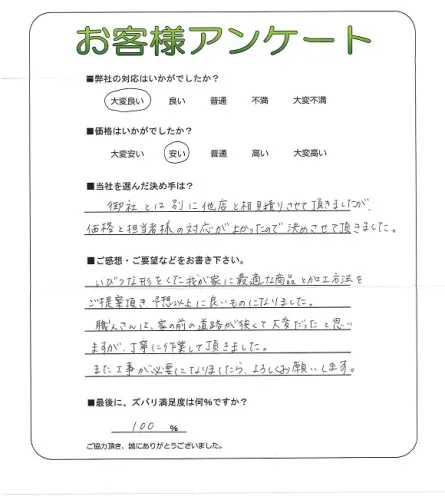 お客様アンケート
■弊社の対応はいかがでしたか？
大変良い 良い 普通 不満 大変不満
■価格はいかがでしたか？
大変安い 安い 普通 高い 大変高い
■当社を選んだ決め手は？
御社とは別に他店と相見積りさせて頂きましたが、
価格と担当者様の対応が良かったので決めさせて頂きました。
■ご感想・ご要望などをお書き下さい。
いびつな形をした我が家に最適な商品と加工方法を
ご提案頂き予想以上に良いものになりました。
職人さんは、家の前の道路が狭くて大変だったと思い
ますが、丁寧に作業して頂きました。
また工事が必要になりましたら、よろしくお願いします。
■最後に、ズバリ満足度は何%ですか？
100 %
ご協力頂き、誠にありがとうございました。